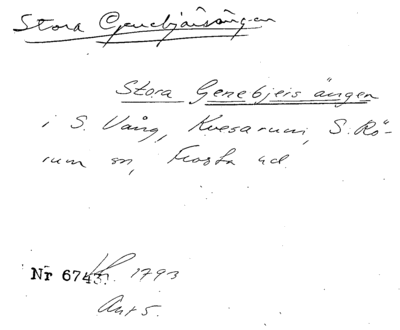 Stora Genebjärsängen
Stora Genebjers ängen
i S. Vång, Kvesarum, S. Rö-
rum sn, Frosta hd.
Nr 6743. 1793
Akt 5.